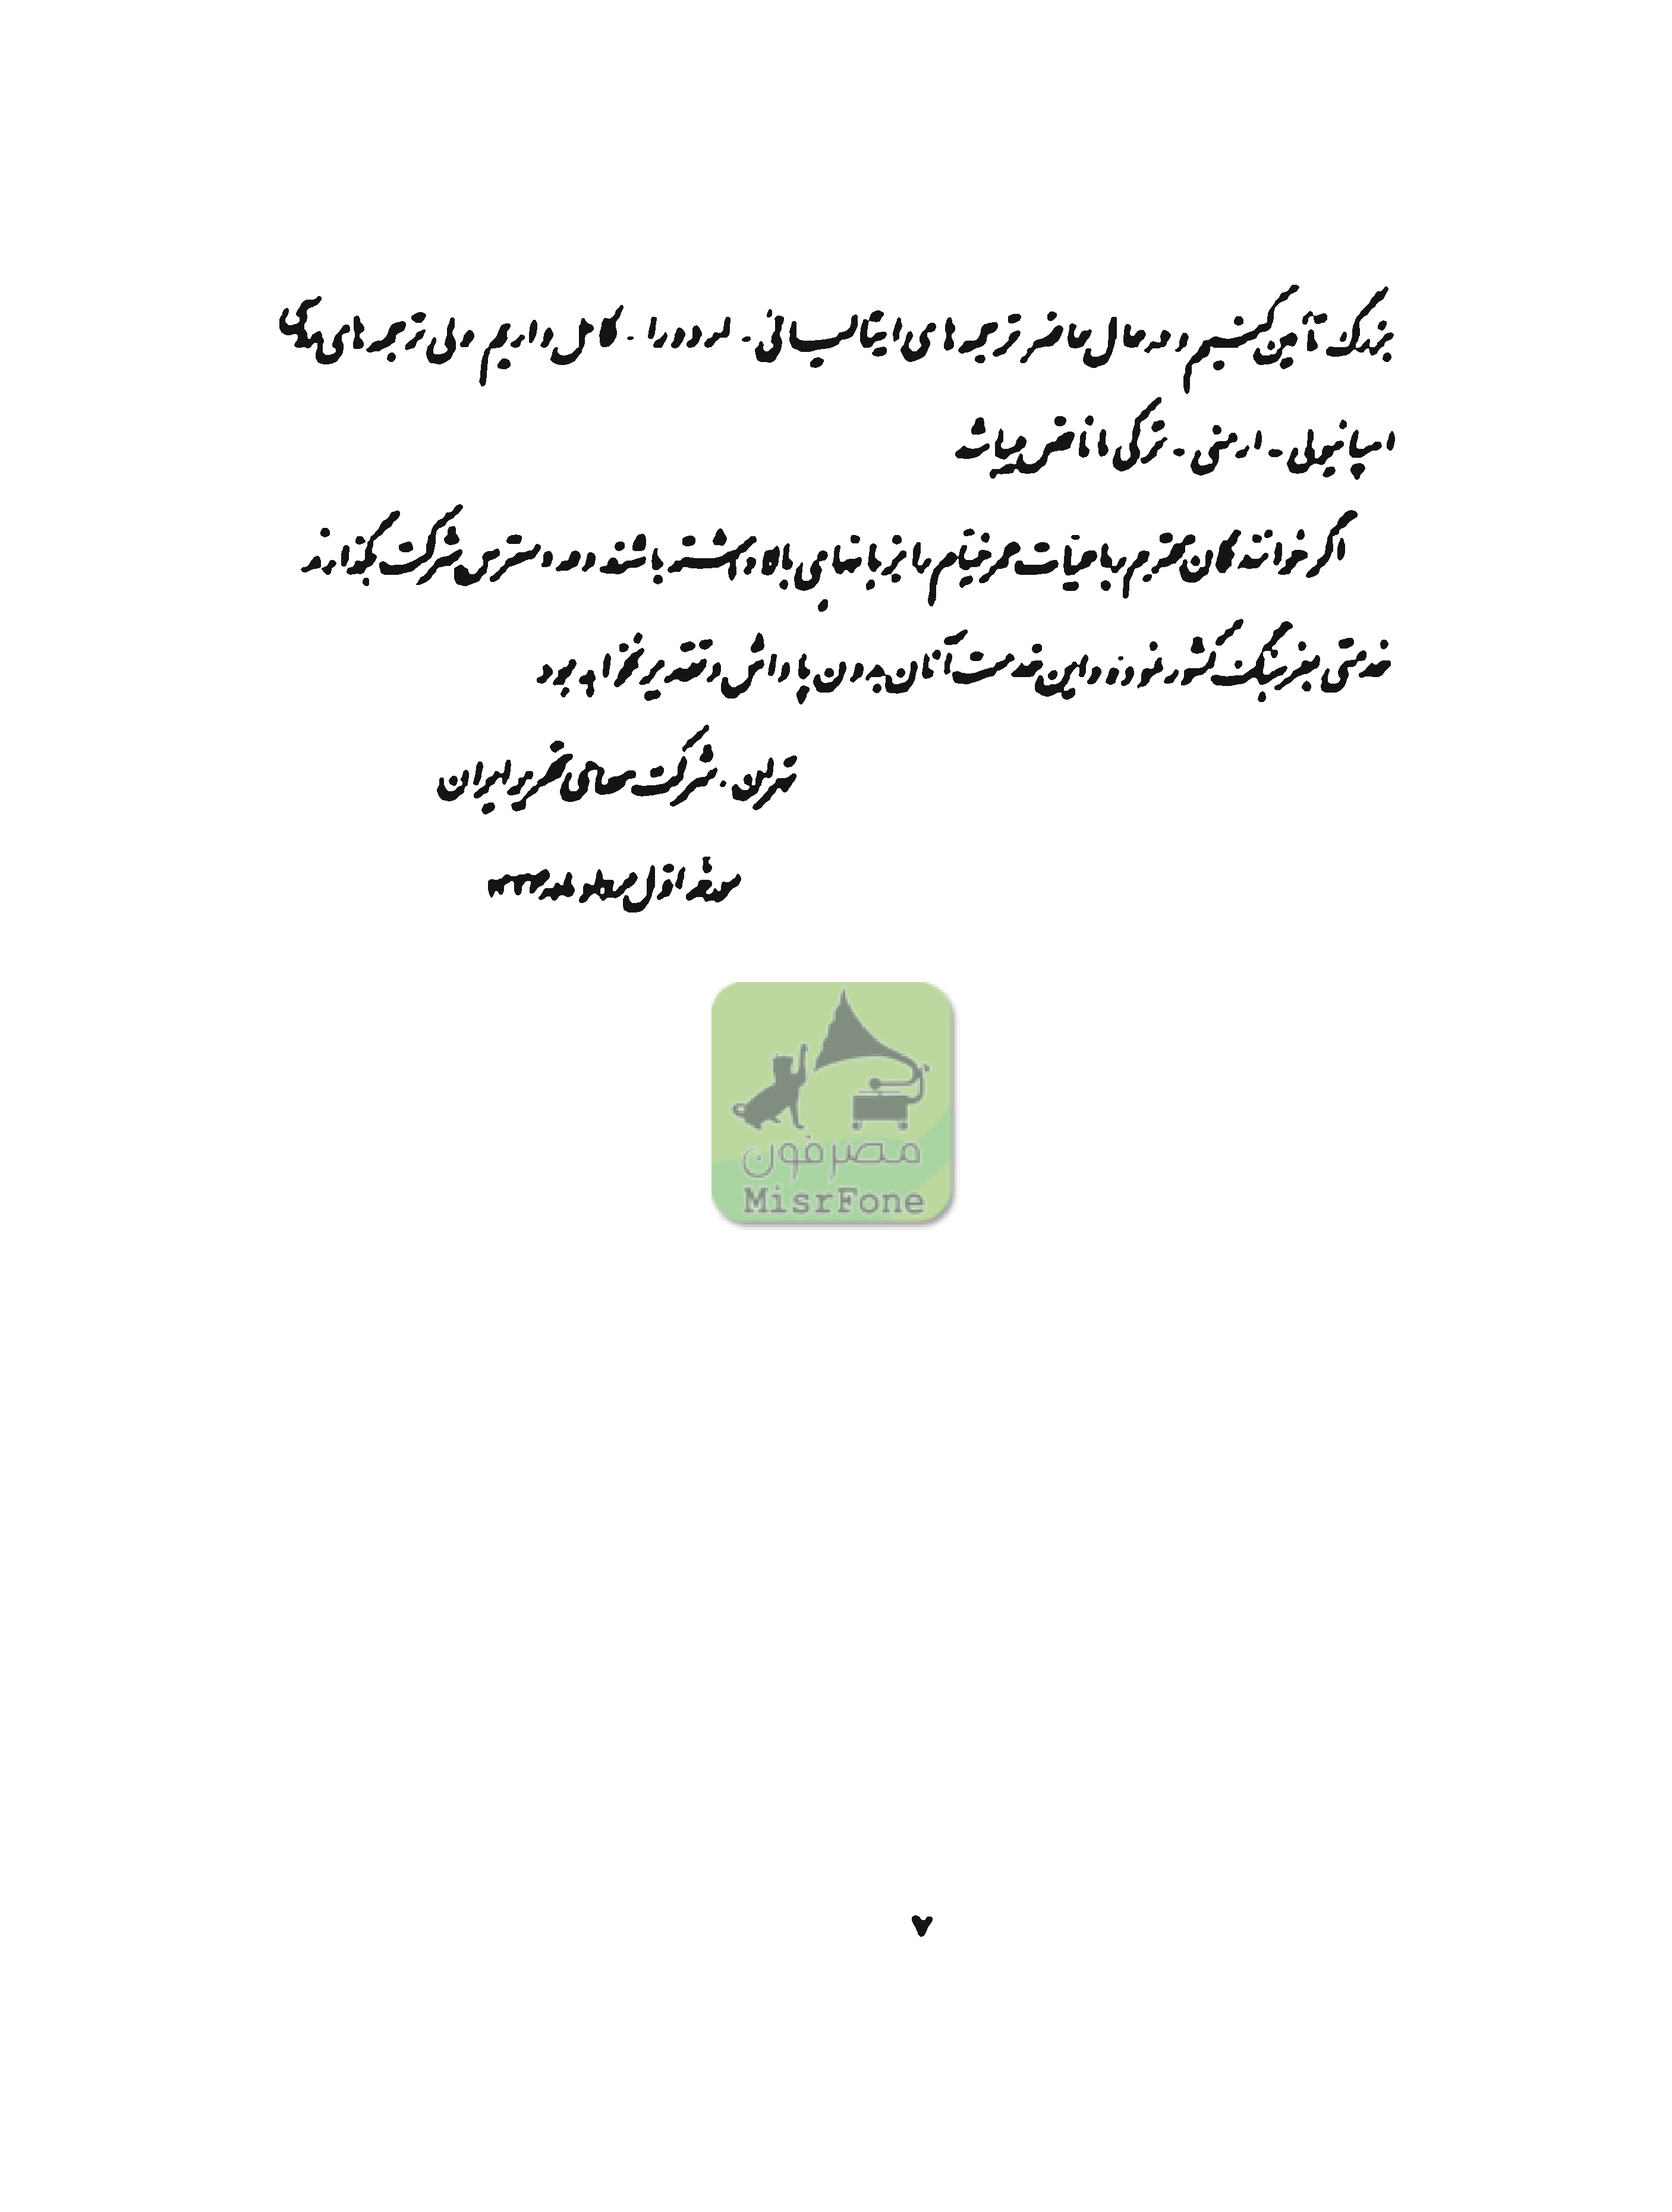 بزرگ تأمین کنیم و در حال حاضر ترجمه های ایتالیائی - اردو را - کامل داریم ولی ترجمه های
اسپانیولی - ارمنی - ترکی ما ناقص میباشد
اگر خوانندگان محترم رباعیات عمر خیام را بزبانهای بالا داشته باشند و در دسترس شرکت بگذارند
خدمتی بفرهنگ کشور نموده و این خدمت آنان بدون پاداش و تقدیر نخواهد بود
تهران . شرکت سهامی تحریر ایران
مورخه اول
مصرفون
MisrFone
۷